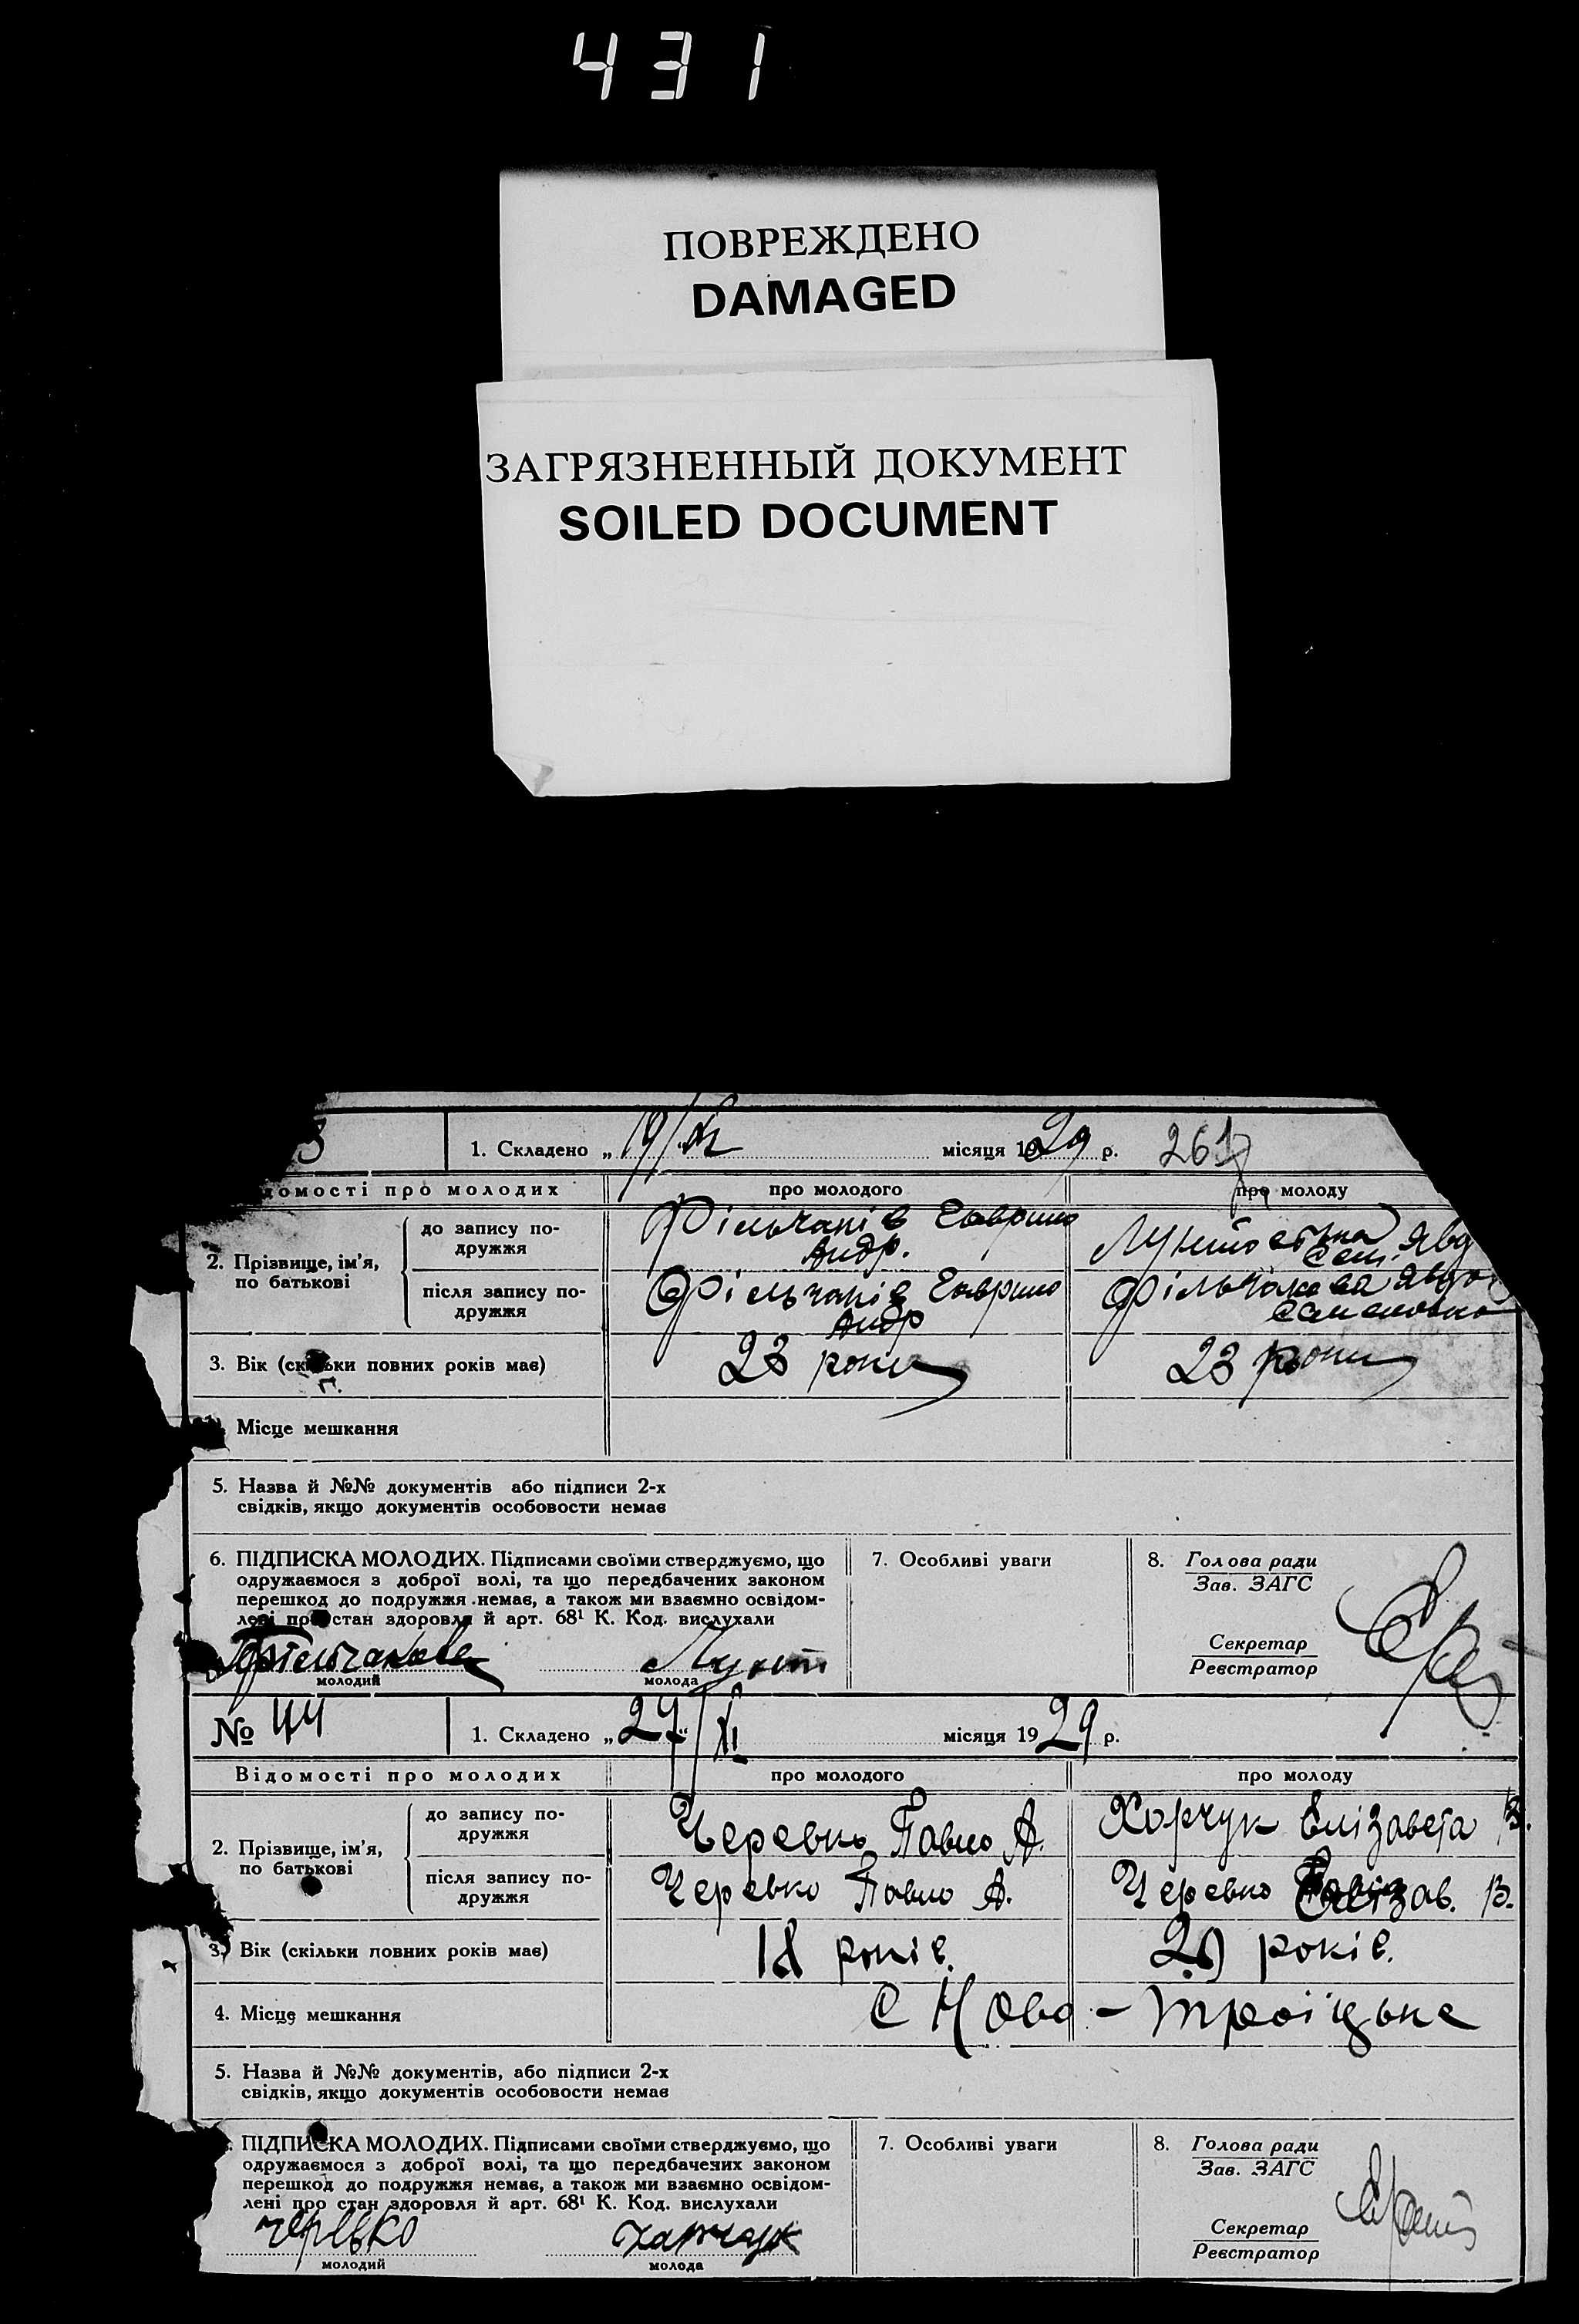 431
ПОВРЕЖДЕНО
DAMAGED
ЗАГРЯЗНЕННЫЙ ДОКУМЕНТ
SOILED DOCUMENT
3
1. Складено „19/XI місяця 1929 р. 261
домості про молодих про молодого про молоду
2. Прізвище, ім'я, по батькові
до запису подружжя
Фільчаків Гаврило Андр.
Сем. Явд
після запису подружжя
Фільчаків Гаврило Андр
Фільчакова Явдо
Семеновна
3. Вік (скільки повних років має) 23 роки 23 роки
Місце мешкання
5. Назва й №№ документів або підписи 2-х
свідків, якщо документів особовости немає
6. ПІДПИСКА МОЛОДИХ. Підписами своїми стверджуємо, що
одружаємося з доброї волі, та що передбачених законом
перешкод до подружжя немає, а також ми взаємно освідом-
лені про стан здоровля й арт. 68¹ К. Код. вислухали
молодий молода
7. Особливі уваги
8. Голова ради
Зав. ЗАГС
Секретар
Реєстратор
№ 44 1. Складено „27“/XI місяця 1929 р.
Відомості про молодих про молодого про молоду
2. Прізвище, ім'я, по батькові
до запису подружжя
Черевко Павло А. Хорчук Елізавета В.
після запису подружжя
Черевко Павло А. Черевко Елізав. В.
3. Вік (скільки повних років має) 18 років. 20 років.
4. Місце мешкання с Ново-Троїцьке
5. Назва й №№ документів, або підписи 2-х
свідків, якщо документів особовости немає
ПІДПИСКА МОЛОДИХ. Підписами своїми стверджуємо, що
одружаємося з доброї волі, та що передбачених законом
перешкод до подружжя немає, а також ми взаємно освідом-
лені про стан здоровля й арт. 68¹ К. Код. вислухали
молодий молода
7. Особливі уваги
8. Голова ради
Зав. ЗАГС
Секретар
Реєстратор